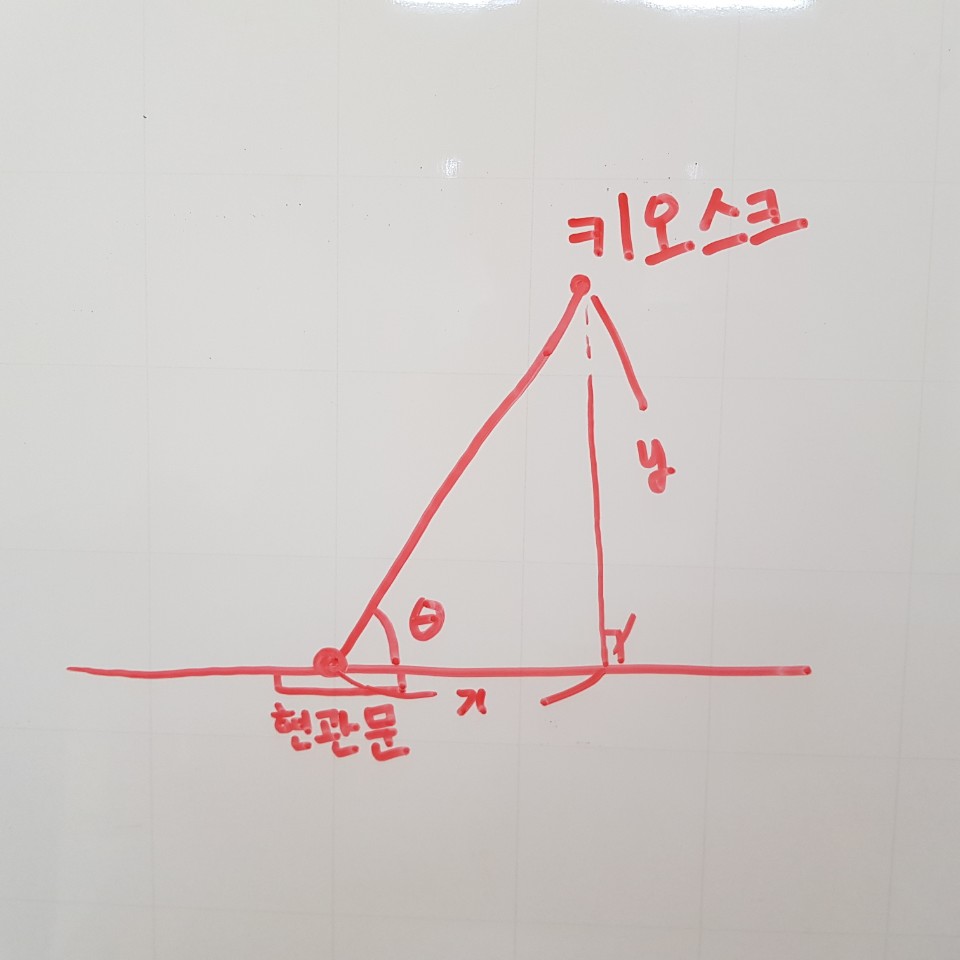 키오스크
y
θ
x
현관문